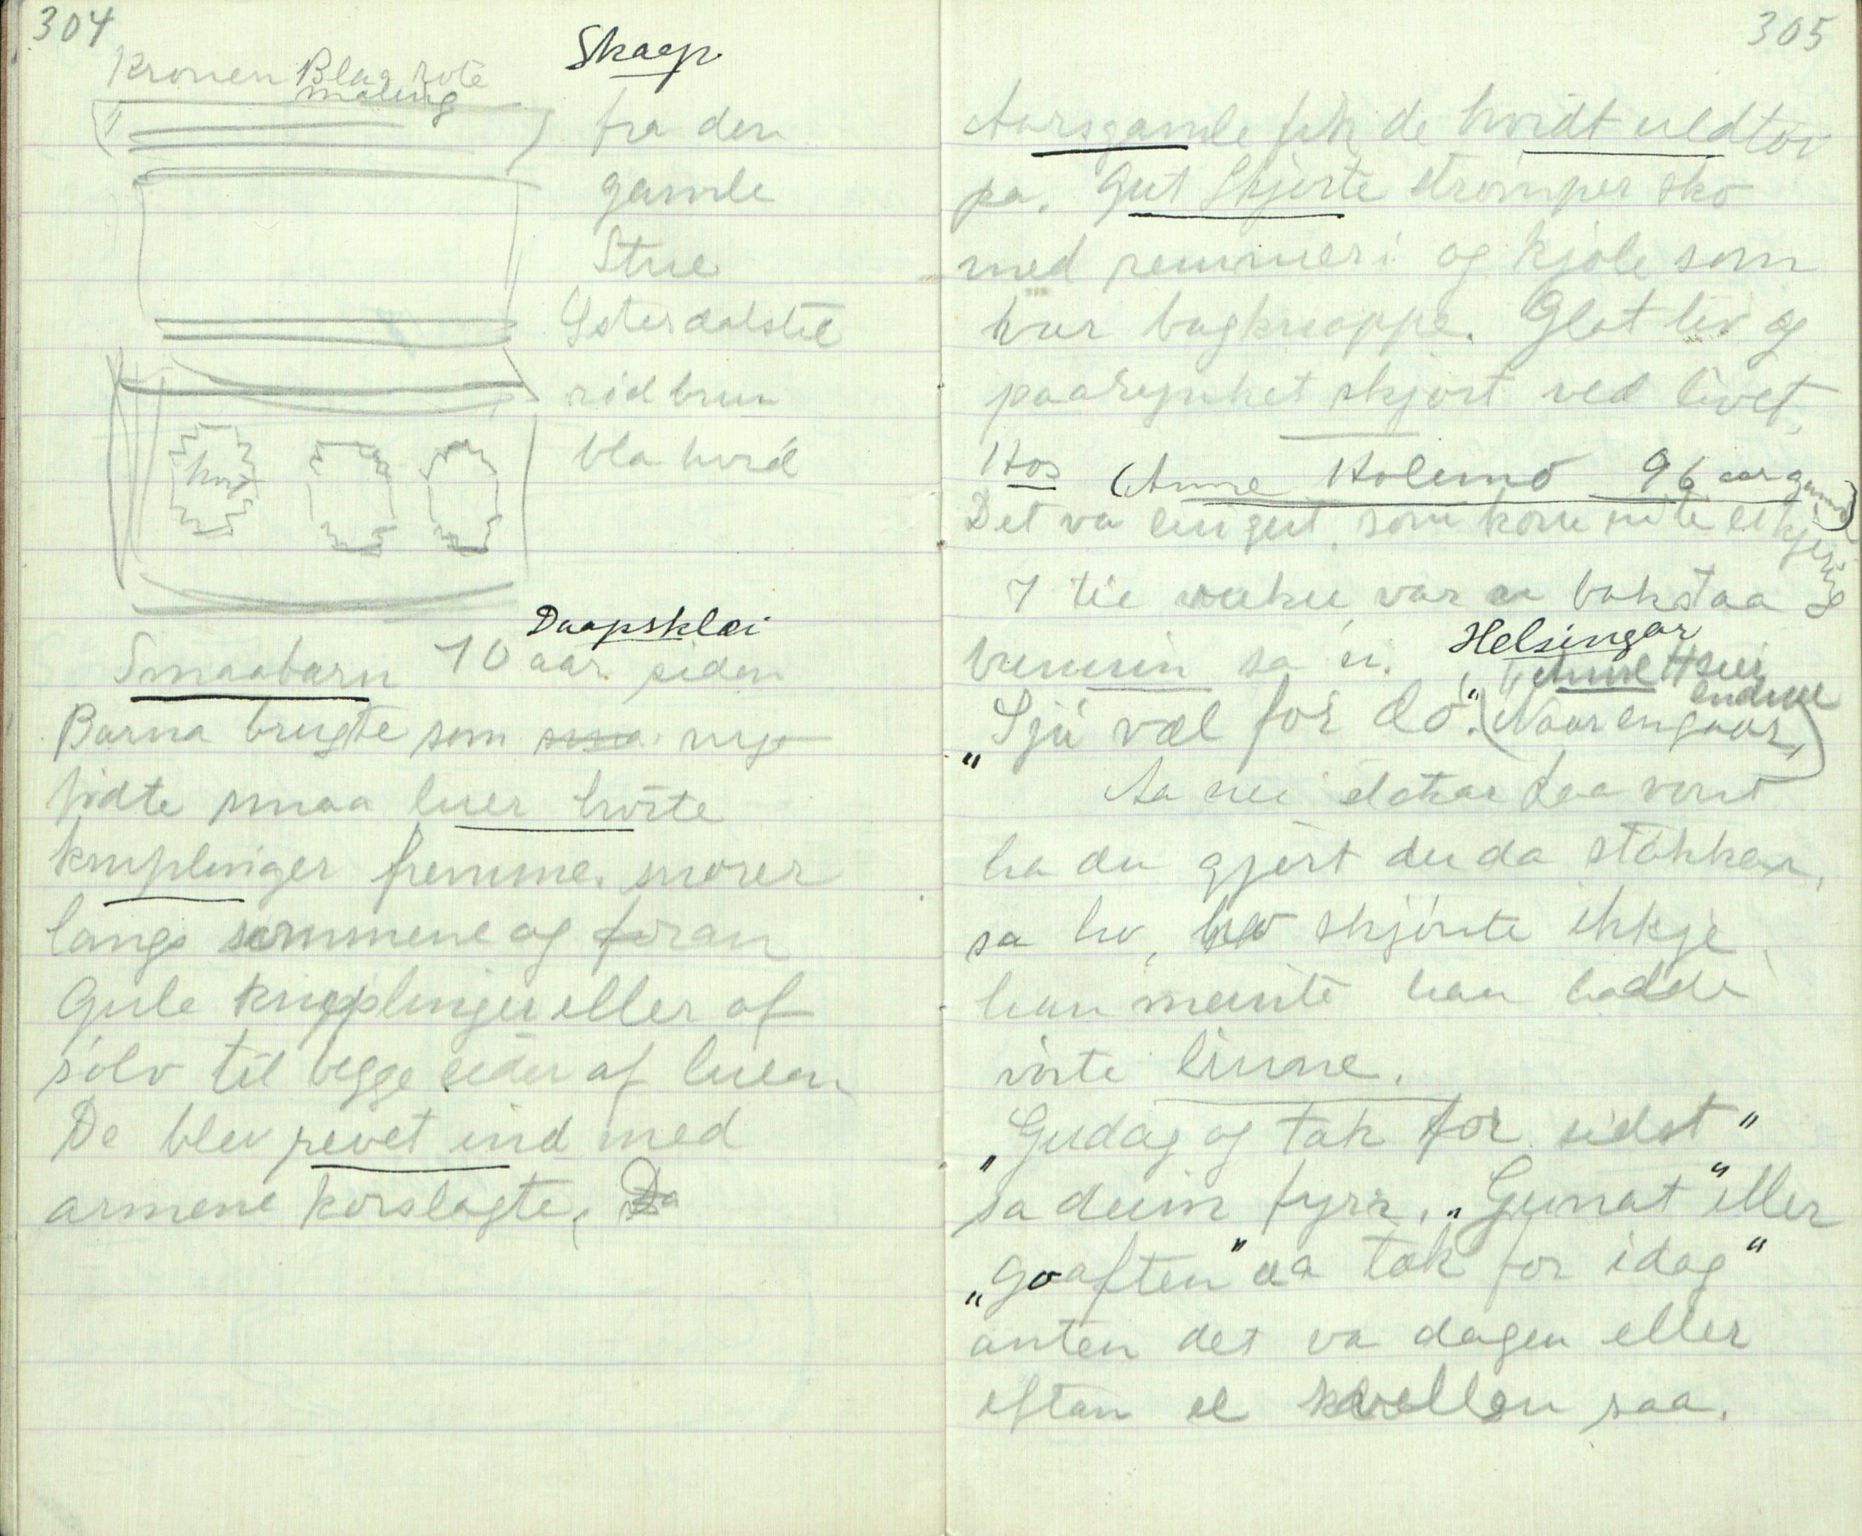 304
Skaap
Kronen Blaa rote
maling
fra den
gamle
Stue
Østerdalstil
rødbrun
bla hvid
hvit
Daapsklæi
Smaabarn 10 aar siden
Barna brugte som nyf
fødte smaa luer hvite
kniplinger fremme. snorer
langs sømmene og foran
Gule kniplinger eller af
sølv til begge sider af luen
De blev revet ind med
armene korslagte, Da
305
Aarsgamle fik de hvidt uldtøi
pa. Gut Skjorte strømper sko
med remmer i og kjole som
var bagknappe. Glat liv og
paarynket skjørt ved livet,
Hos (Anne Holemo 96 aar gammel)
Det va ein gut som kom inte ei kjering
I tie veku var a bakstaa
sa n.
Helsingar
Anne Haui
endree
„Sju væl for do“. (Naar en gaar)
Aa nei da vont
ha du gjort du da stakkar,
sa ho, ho skjønte ikkje
han meinte han hadde
vorte
„Gudag og tak for sidst“
sa deim fyrr, „Gunat“ eller
„goaften“ aa tak for idag“
anten det va dagen eller
eftan el kvellen saa.